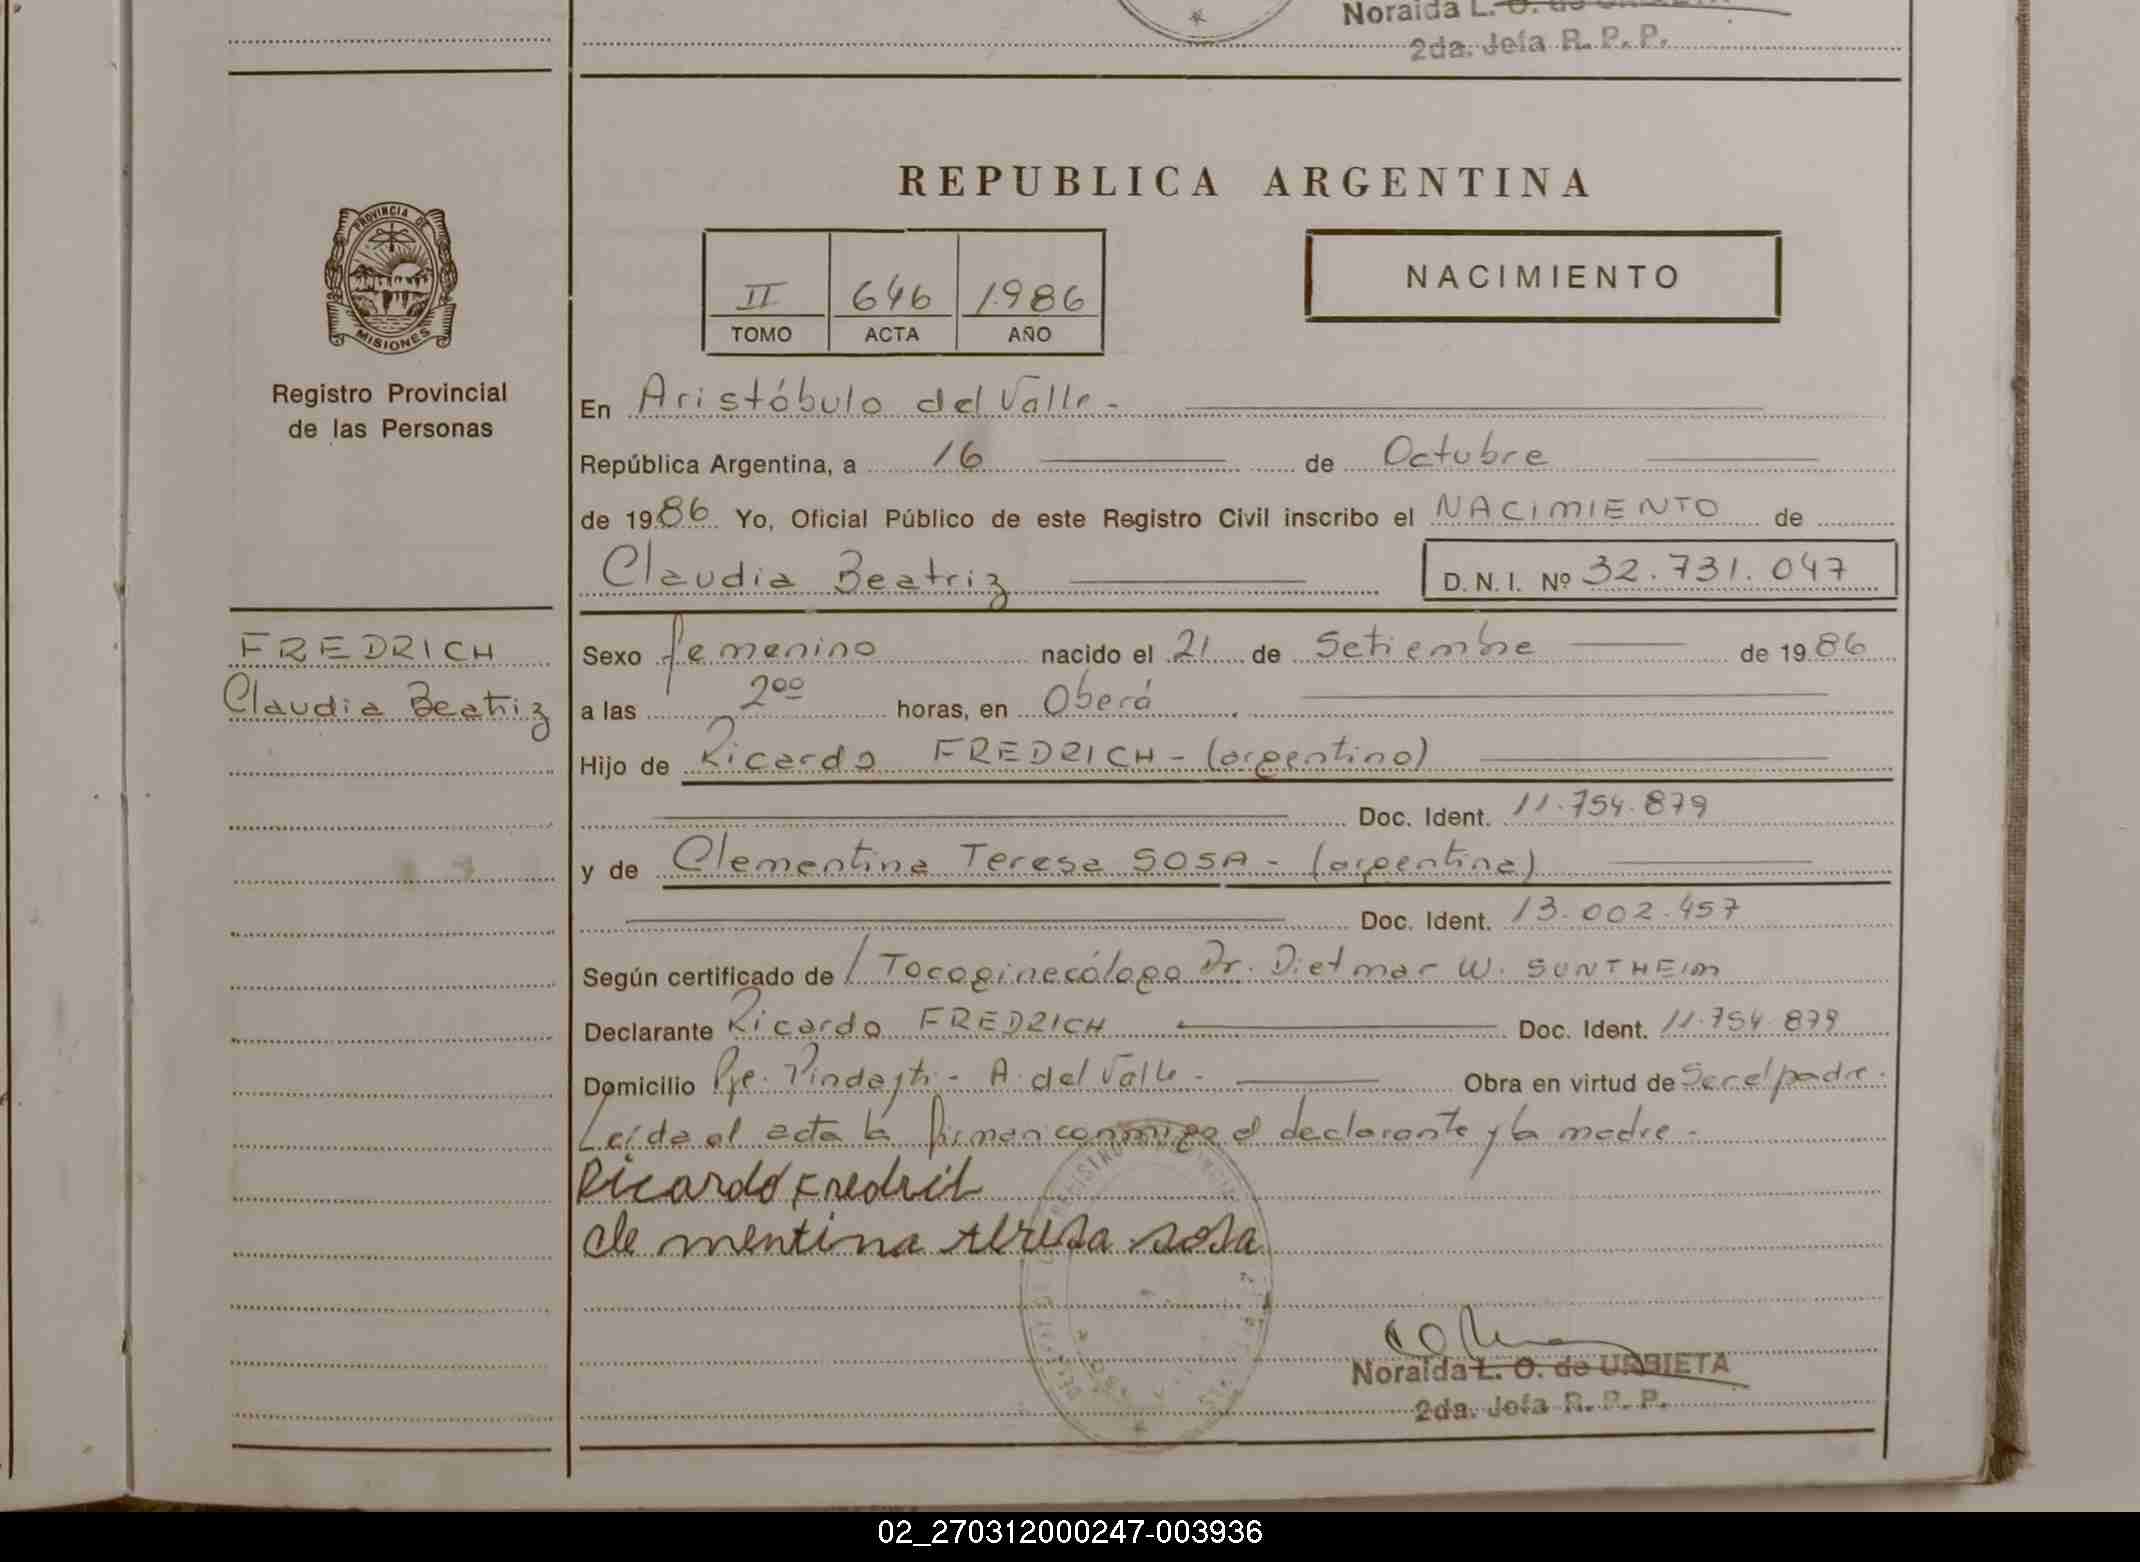 Noraida L. O. de URBIETA
2da. Jefa R. P. P.
REPUBLICA ARGENTINA
PROVINCIA DE
MISIONES
Registro Provincial
de las Personas
II 646 1986
TOMO ACTA AÑO
NACIMIENTO
En Aristóbulo del Valle -
República Argentina, a 16 de Octubre
de 1986 Yo, Oficial Público de este Registro Civil inscribo el NACIMIENTO de
Claudia Beatriz D. N. I. Nº 32.731.047
FREDRICH
Claudia Beatriz
Sexo femenino nacido el 21 de Setiembre de 1986
a las 2⁰⁰ horas, en Oberá
Hijo de Ricardo FREDRICH - (argentino)
Doc. Ident. 11.754.879
y de Clementina Teresa SOSA - (argentina)
Doc. Ident. 13.002.457
Según certificado de / Tocoginecólogo Dr. Dietmar W. SUNTHEIM
Declarante Ricardo FREDRICH Doc. Ident. 11.754.879
Domicilio Pje. Pindayti - A. del Valle - Obra en virtud de Ser el padre.
Leída el acta la firman conmigo el declarante y la madre -
Ricardo Fredrich
clementina teresa sosa
Noraida L. O. de URBIETA
2da. Jefa R. P. P.
02_270312000247-003936